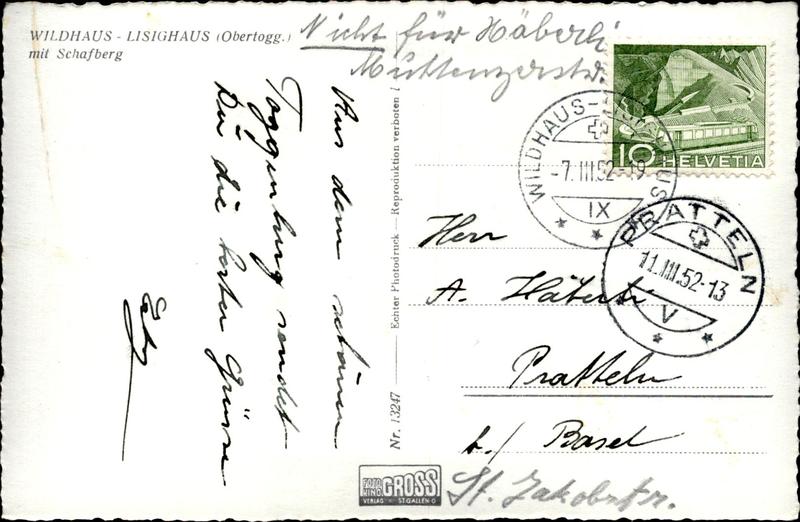 WILDHAUS - LISIGHAUS (Obertogg.)
mit Schafberg
Nicht für Häberli
Muttenzerstr.
Aus dem schönen
Toggenburg sendet
Dir die besten Grüsse
Nr. 13247 — Echter Photodruck — Reproduktion verboten !
10 HELVETIA
WILDHAUS-LISIGHAUS
-7.III.52-19
IX
PRATTELN
11.III.52-13
V
Herr
A. Häberli
Pratteln
b./ Basel
St. Jakobstr.
FOTO
KINO GROSS
VERLAG ST. GALLEN O